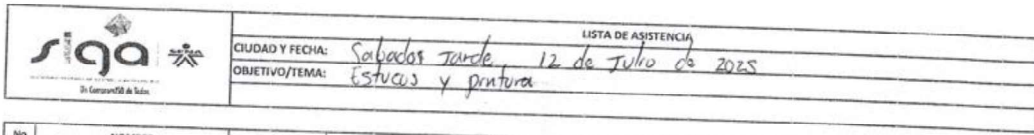 siga
sena
Un Compromiso de Todos
LISTA DE ASISTENCIA
CIUDAD Y FECHA: Sabados Tarde 12 de Julio de 2025
OBJETIVO/TEMA: Estucos y pintura
No